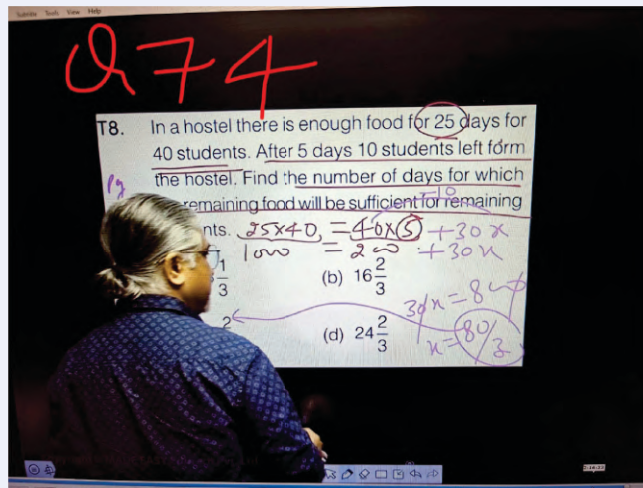 Subtitle Tools View Help
Q74
T8. In a hostel there is enough food for 25 days for
40 students. After 5 days 10 students left form
the hostel. Find the number of days for which
remaining food will be sufficient for remaining
-10
nts. 25×40 = 40×5 + 30x
1000 = 200 + 30x
1/3 (b) 16 2/3
30x = 800
2 (d) 24 2/3
x = 80/3